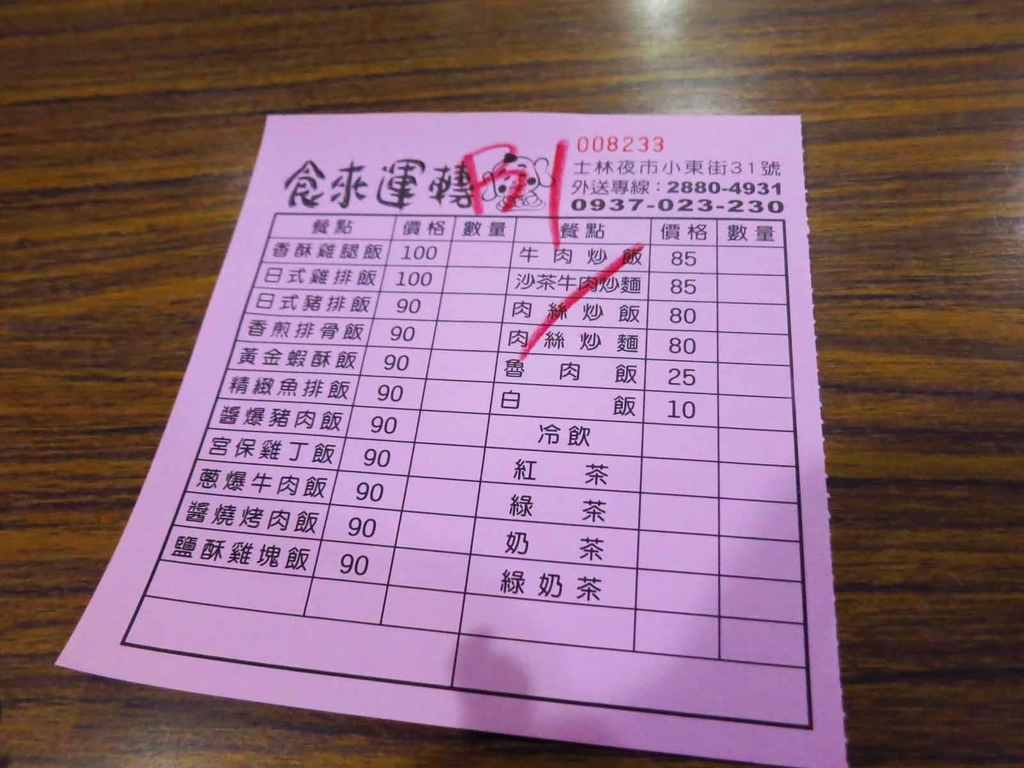 008233
食來運轉
士林夜市小東街31號
外送專線：2880-4931
0937-023-230
餐點 價格 數量 餐點 價格 數量
香酥雞腿飯 100 牛肉炒飯 85
日式雞排飯 100 沙茶牛肉炒麵 85
日式豬排飯 90 肉絲炒飯 80
香煎排骨飯 90 肉絲炒麵 80
黃金蝦酥飯 90 魯肉飯 25
精緻魚排飯 90 白飯 10
醬爆豬肉飯 90 冷飲
宮保雞丁飯 90 紅茶
蔥爆牛肉飯 90 綠茶
醬燒烤肉飯 90 奶茶
鹽酥雞塊飯 90 綠奶茶